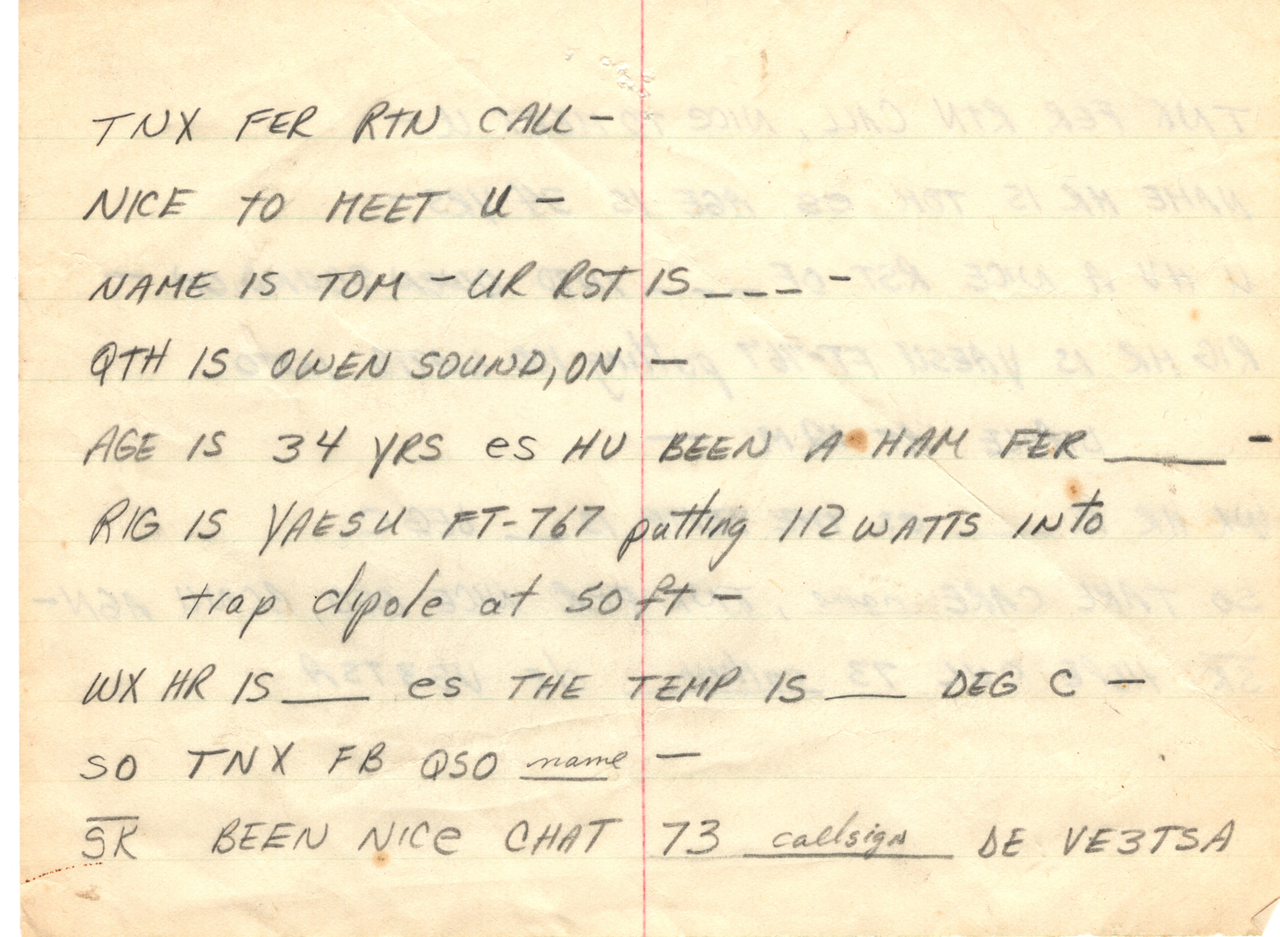 TNX FER RTN CALL —
NICE TO MEET U —
NAME IS TOM — UR RST IS _ _ _ —
QTH IS OWEN SOUND, ON —
AGE IS 34 YRS es HV BEEN A HAM FER ____ —
RIG IS YAESU FT-767 putting 112 WATTS INto
trap dipole at 50 ft —
WX HR IS ___ es THE TEMP IS ___ DEG C —
SO TNX FB QSO name —
SK BEEN NICe CHAT 73 callsign DE VE3TSA